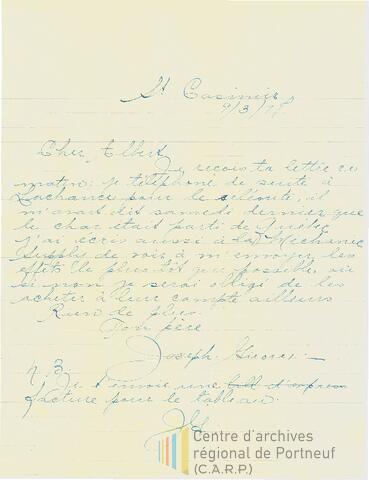 St Casimir
9/3/
Cher Albert
Je recois ta lettre ce
matin; je téléphone de suite à
Lachance pour le , il
m'avait dit samedi dernier que
le char était parti de Québec
j'ai écris aussi à la Mechanic
Supply de voir à m'envoyer les
effets le plus tôt que possible, ou
si non je serai obligé de les
acheter à leur compte ailleurs
Rien de plus.
Ton père
Joseph
N.B.
Je t'envoie une bill d'
facture pour le tableau.
Centre d'archives
régional de Portneuf
(C.A.R.P.)